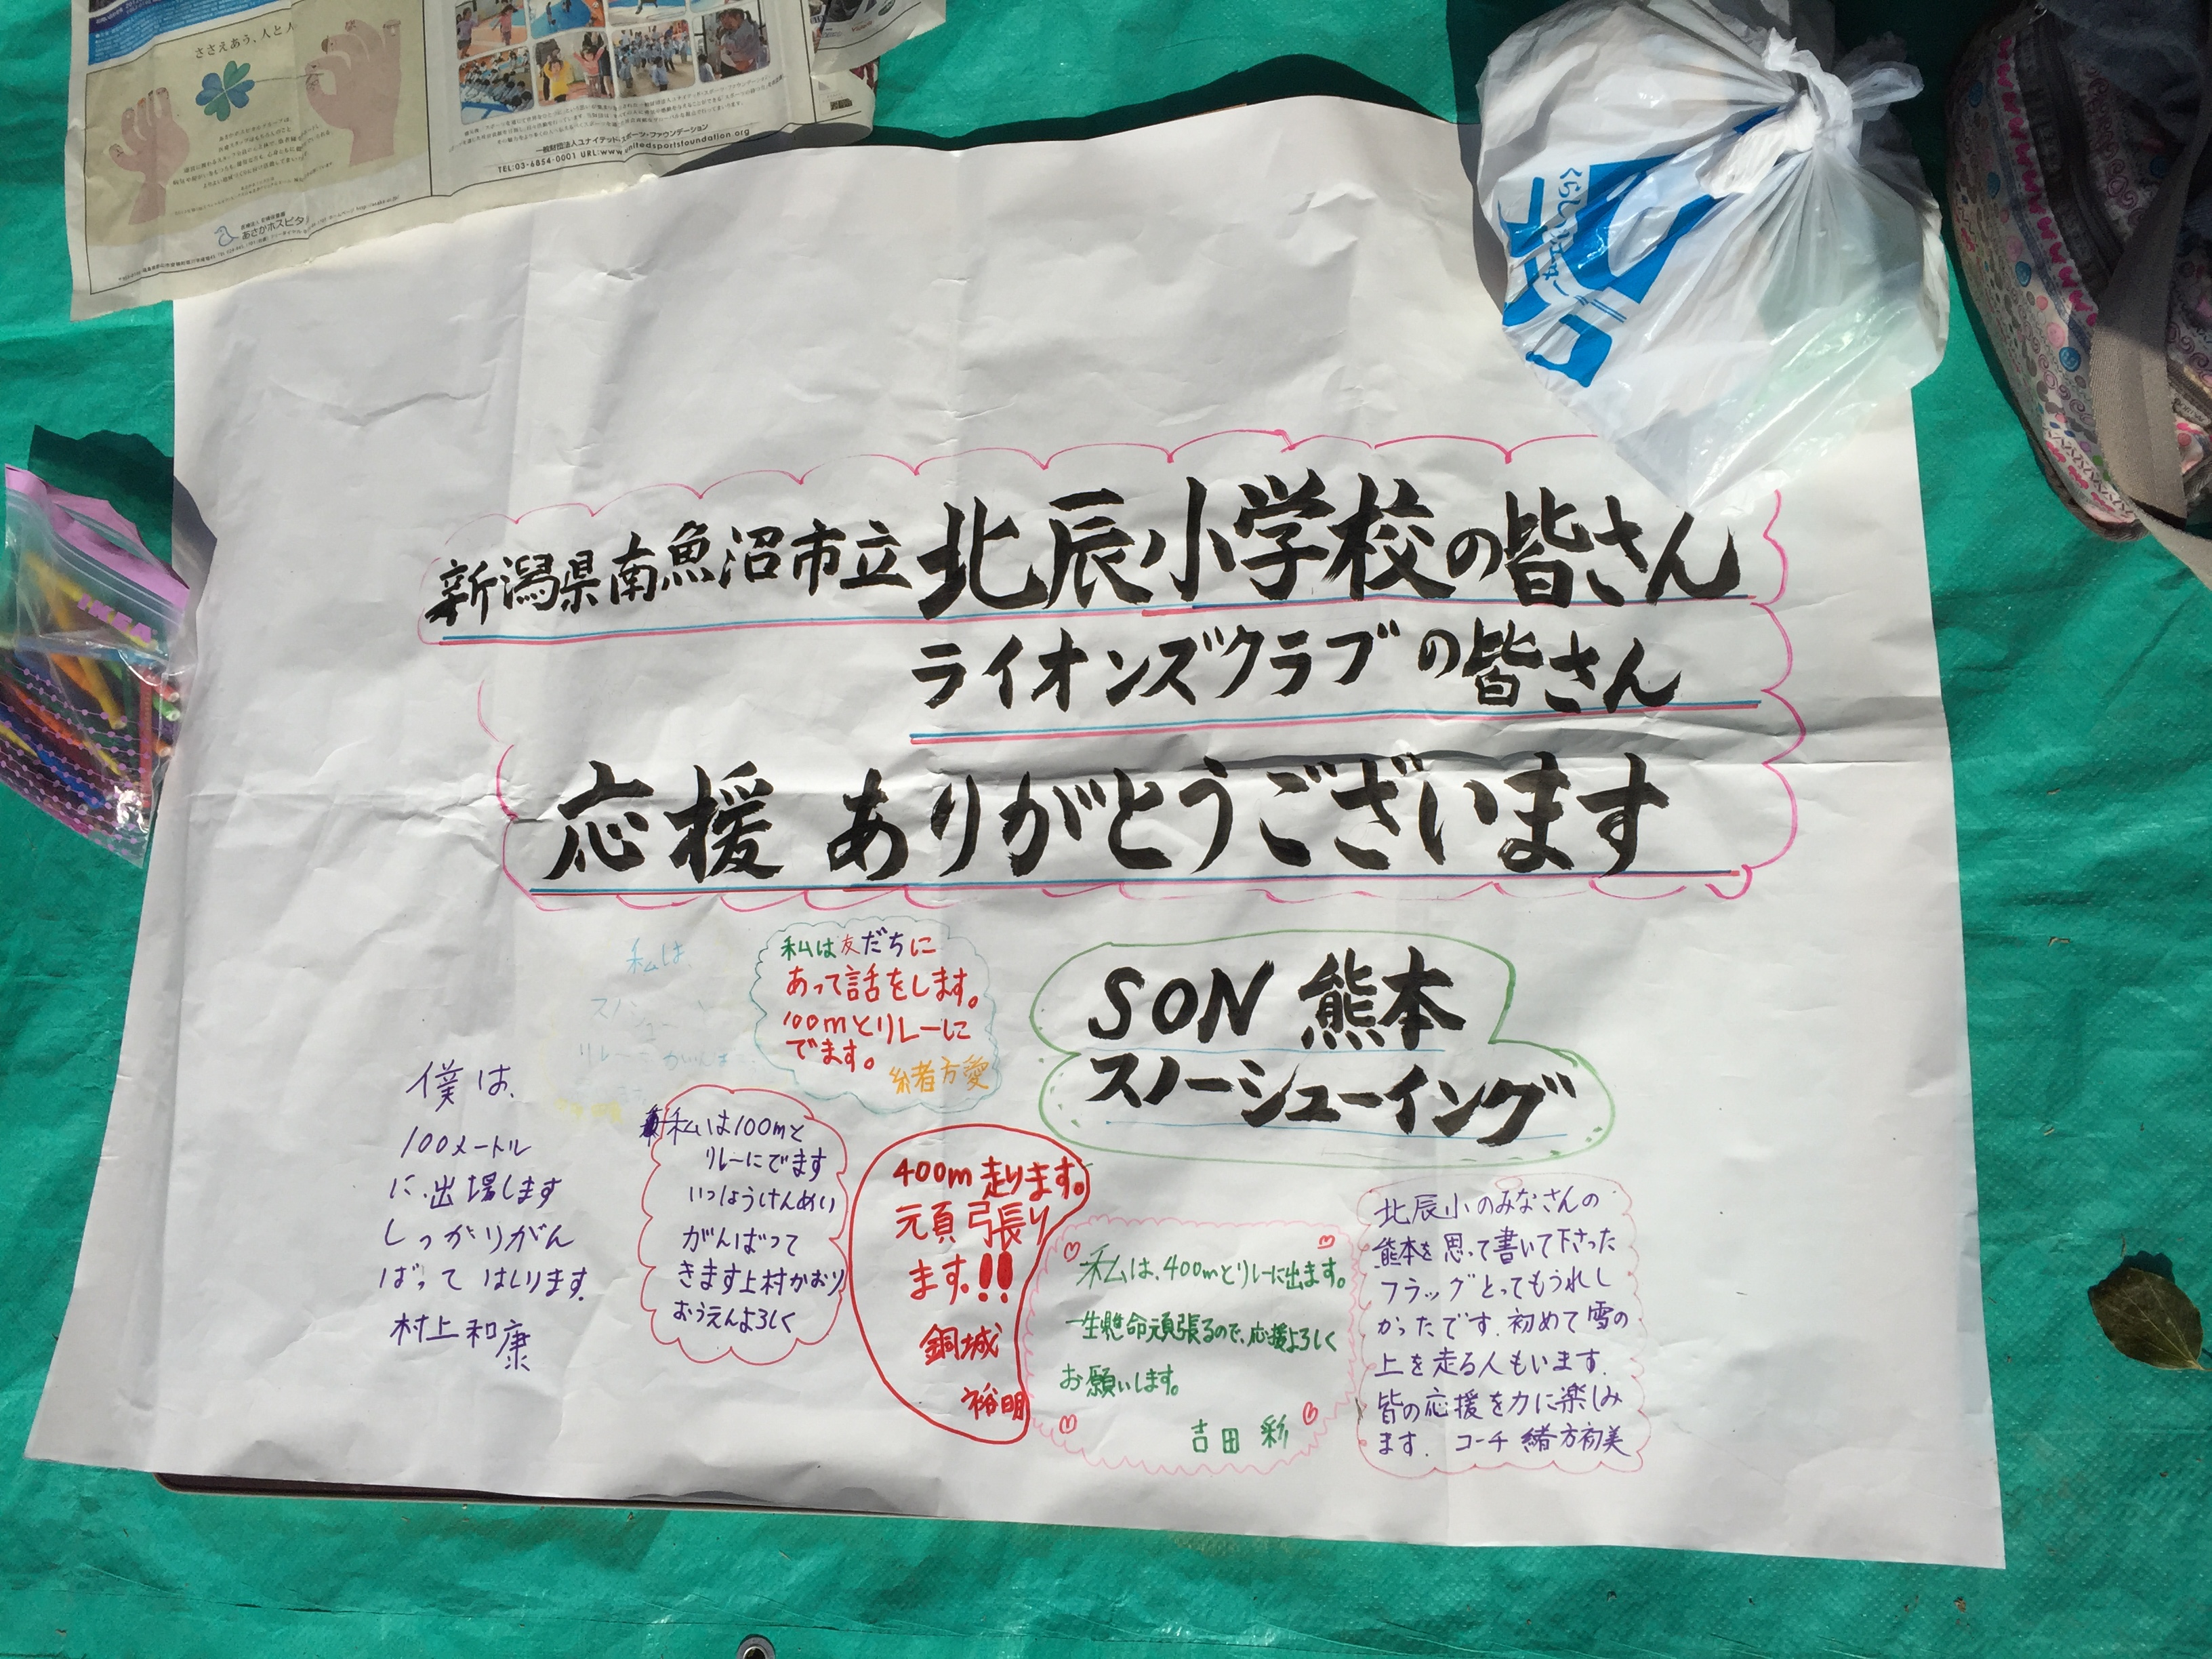 ささえあう、人と人
あさかホスピタル
一般財団法人ユナイテッド・スポーツ・ファウンデーション
TEL:03-6854-0001 URL:www.unitedsportsfoundation.org
IKEA
新潟県南魚沼市立北辰小学校の皆さん
ライオンズクラブの皆さん
応援 ありがとうございます
SON 熊本
スノーシューイング
私は
私は友だちに
あって話をします。
100mとリレーに
でます。
緒方愛
僕は、
100メートル
に出場します
しっかりがん
ばって はしります。
村上和康
私は100mと
リレーにでます
いっしょうけんめい
がんばって
きます上村かおり
おうえんよろしく
400m走ります。
元頁張り
ます。!!
銅城
裕明
私は、400mとリレーに出ます。
一生懸命頑張るので、応援よろしく
お願いします。
吉田 彩
北辰小のみなさんの
熊本を思って書いて下さった
フラッグとってもうれし
かったです.初めて雪の
上を走る人もいます.
皆の応援を力に楽しみ
ます. コーチ 緒方初美